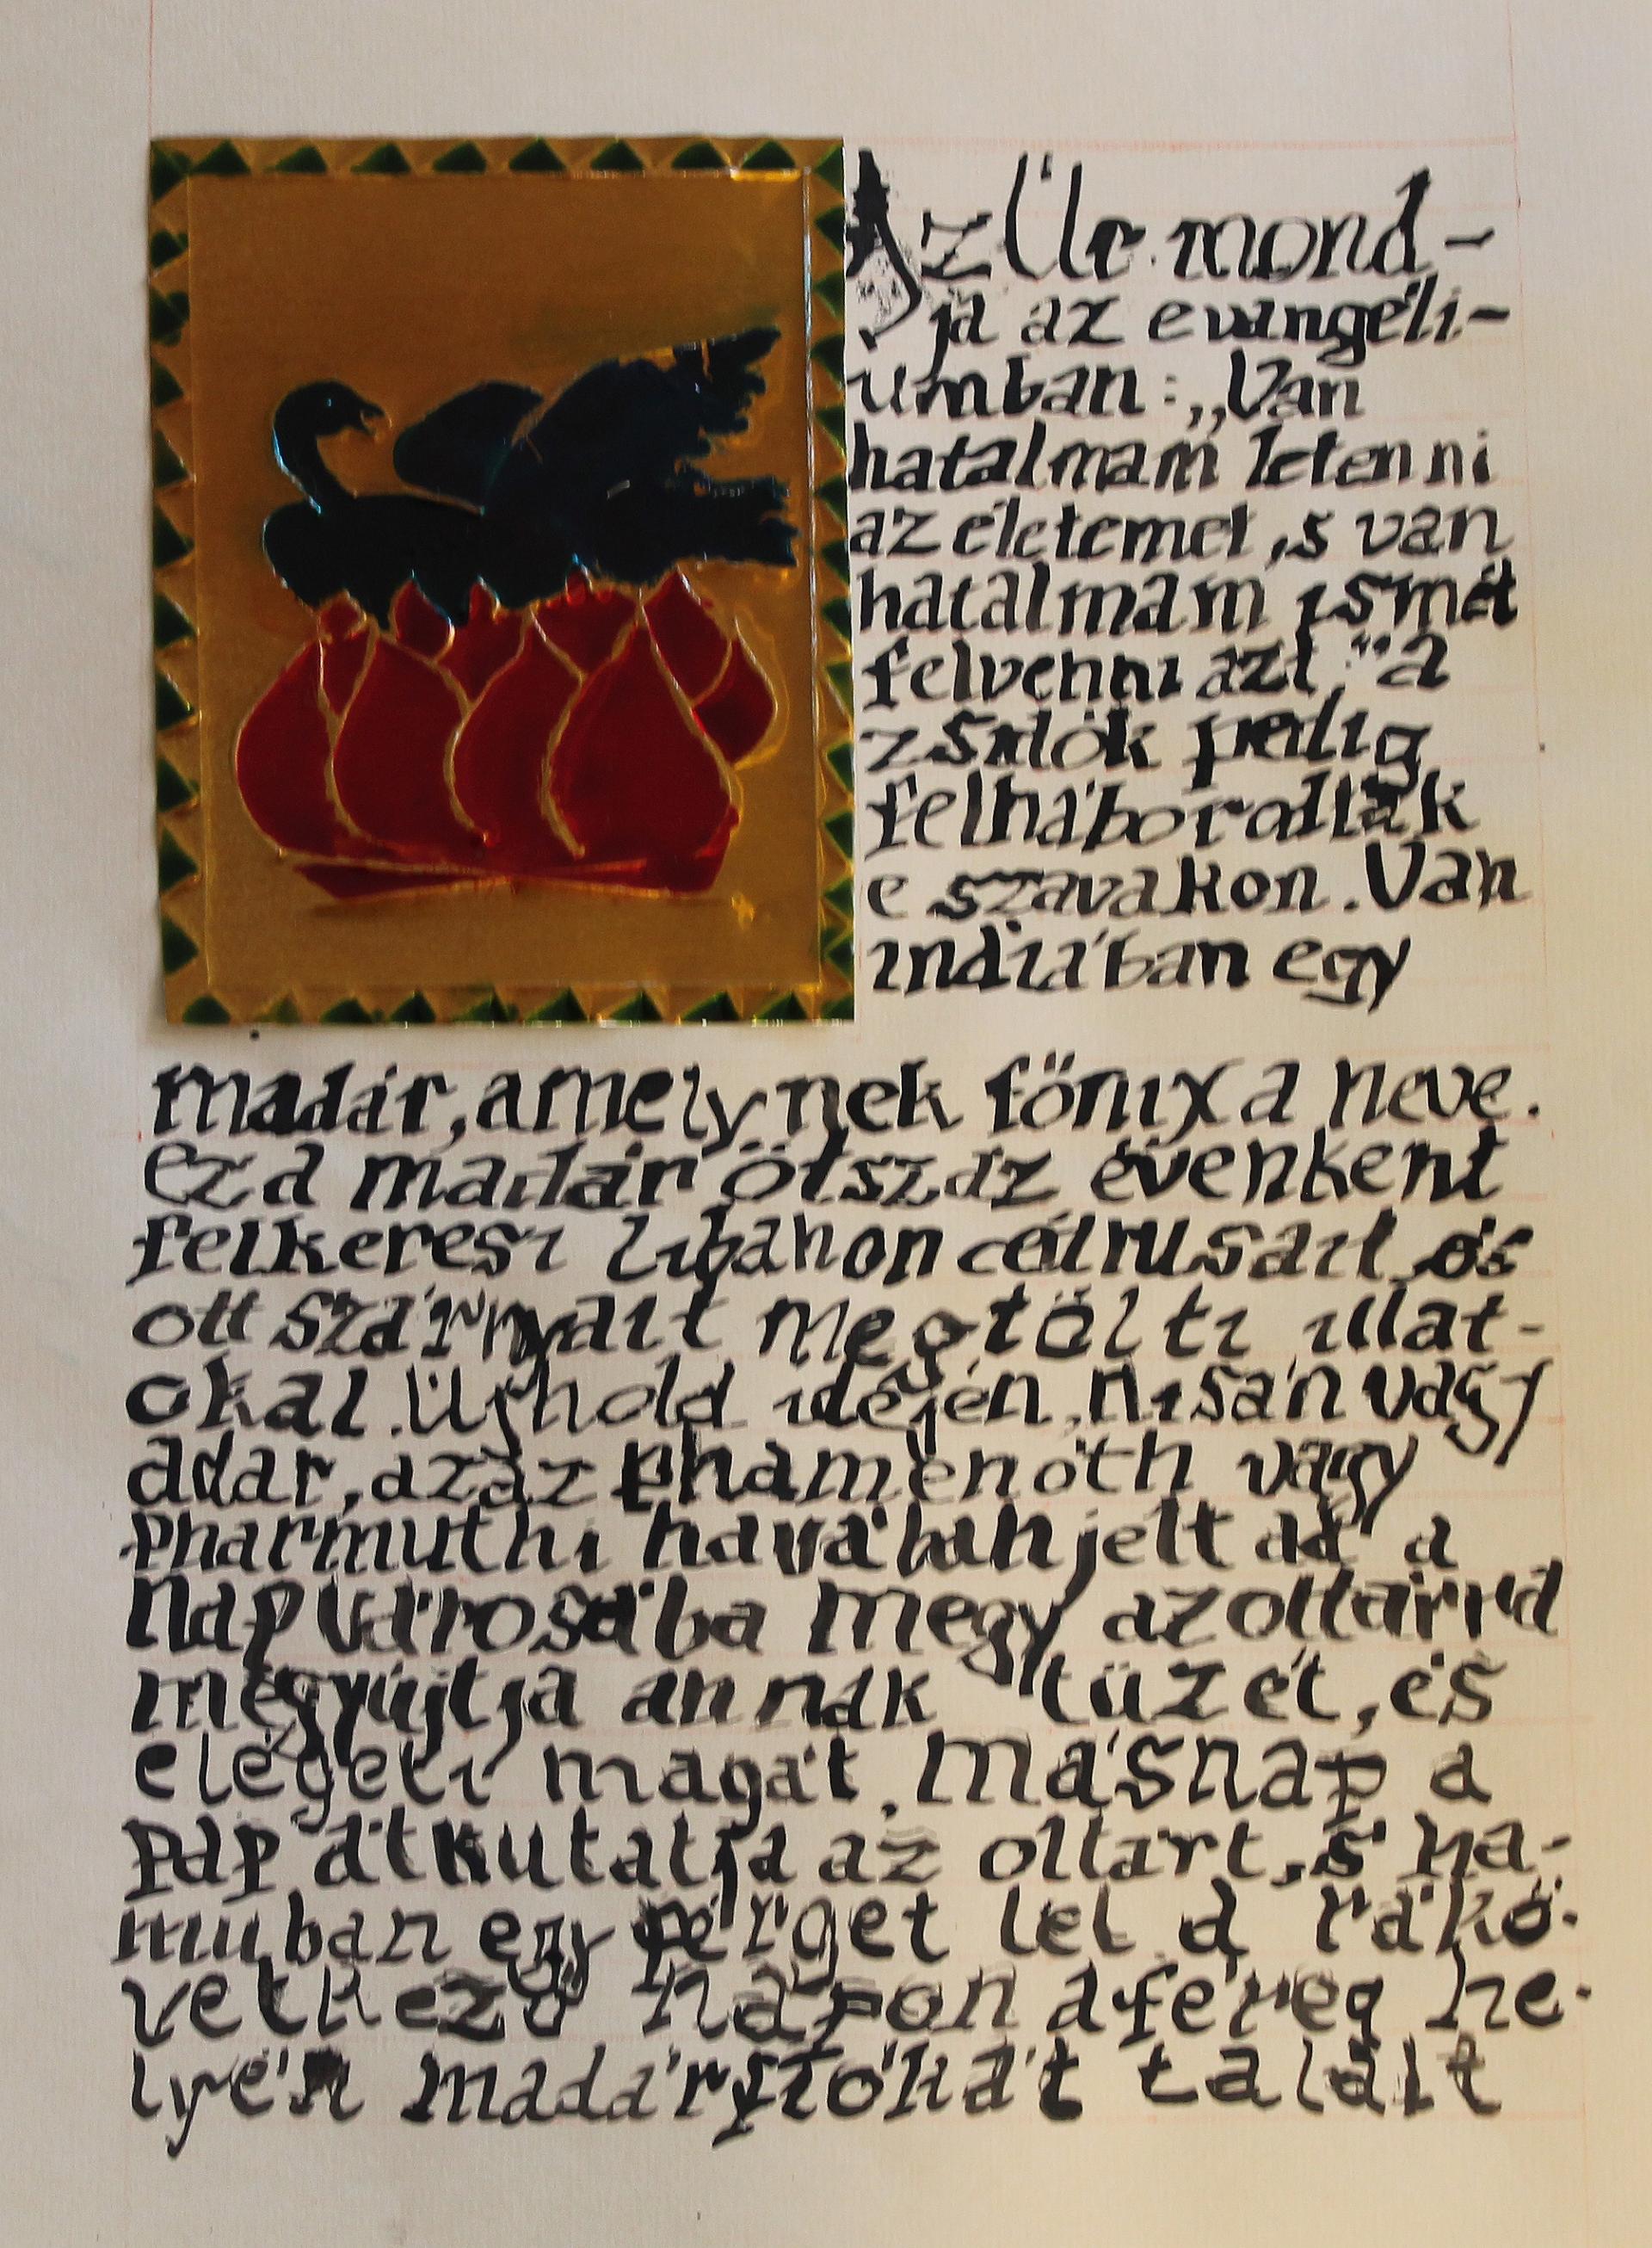 Az Úr mond-
ja az evangéli-
umban: „Van
hatalmam letenni
az életemet, s van
hatalmam ismét
felvenni azt.” a
zsidók pedig
felháborodtak
e szavakon. Van
indiában egy
madár, amelynek főnix a neve.
ez a madár ötszáz évenként
felkeresi libanon cédrusait és
ott szárnyait megtölti illat-
okal. Újhold idején, nisán vagy
adar, azaz phamenoth vagy
pharmuthi havában jelt ad a
Nap városába megy az oltárra
megyújtja annak tüzét, és
elégeti magát. másnap a
pap átkutatja az oltárt, s ha-
muban egy férget lel a rákö-
vetkező napon a féreg he-
lyén madárfiókát talált